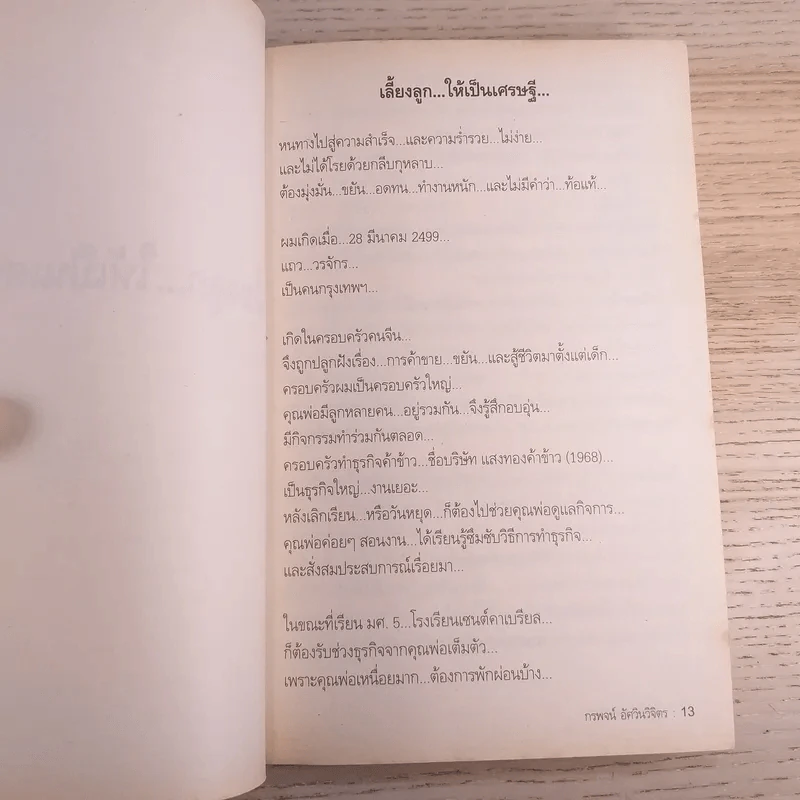 เลี้ยงลูก...ให้เป็นเศรษฐี...
หนทางไปสู่ความสำเร็จ...และความร่ำรวย...ไม่ง่าย...
และไม่ได้โรยด้วยกลีบกุหลาบ...
ต้องมุ่งมั่น...ขยัน...อดทน...ทำงานหนัก...และไม่มีคำว่า...ท้อแท้...
ผมเกิดเมื่อ...28 มีนาคม 2499...
แถว...วรจักร...
เป็นคนกรุงเทพฯ...
เกิดในครอบครัวคนจีน...
จึงถูกปลูกฝังเรื่อง...การค้าขาย...ขยัน...และสู้ชีวิตมาตั้งแต่เด็ก...
ครอบครัวผมเป็นครอบครัวใหญ่...
คุณพ่อมีลูกหลายคน...อยู่รวมกัน...จึงรู้สึกอบอุ่น...
มีกิจกรรมทำร่วมกันตลอด...
ครอบครัวทำธุรกิจค้าข้าว...ชื่อบริษัท แสงทองค้าข้าว (1968)...
เป็นธุรกิจใหญ่...งานเยอะ...
หลังเลิกเรียน...หรือวันหยุด...ก็ต้องไปช่วยคุณพ่อดูแลกิจการ...
คุณพ่อค่อยๆ สอนงาน...ได้เรียนรู้ซึมซับวิธีการทำธุรกิจ...
และสั่งสมประสบการณ์เรื่อยมา...
ในขณะที่เรียน มศ. 5...โรงเรียนเซนต์คาเบรียล...
ก็ต้องรับช่วงธุรกิจจากคุณพ่อเต็มตัว...
เพราะคุณพ่อเหนื่อยมาก...ต้องการพักผ่อนบ้าง...
กรพจน์ อัศวินวิจิตร : 13